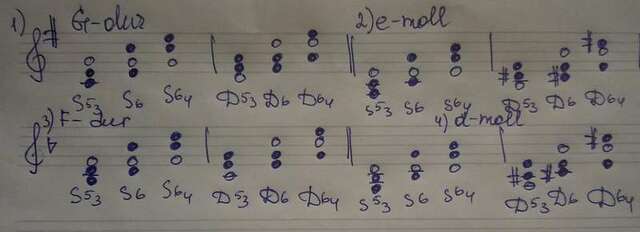 1) G-dur 2) e-moll
S53 S6 S64 D53 D6 D64 S53 S6 S64 D53 D6 D64
3) F-dur 4) d-moll
S53 S6 S64 D53 D6 D64 S53 S6 S64 D53 D6 D64